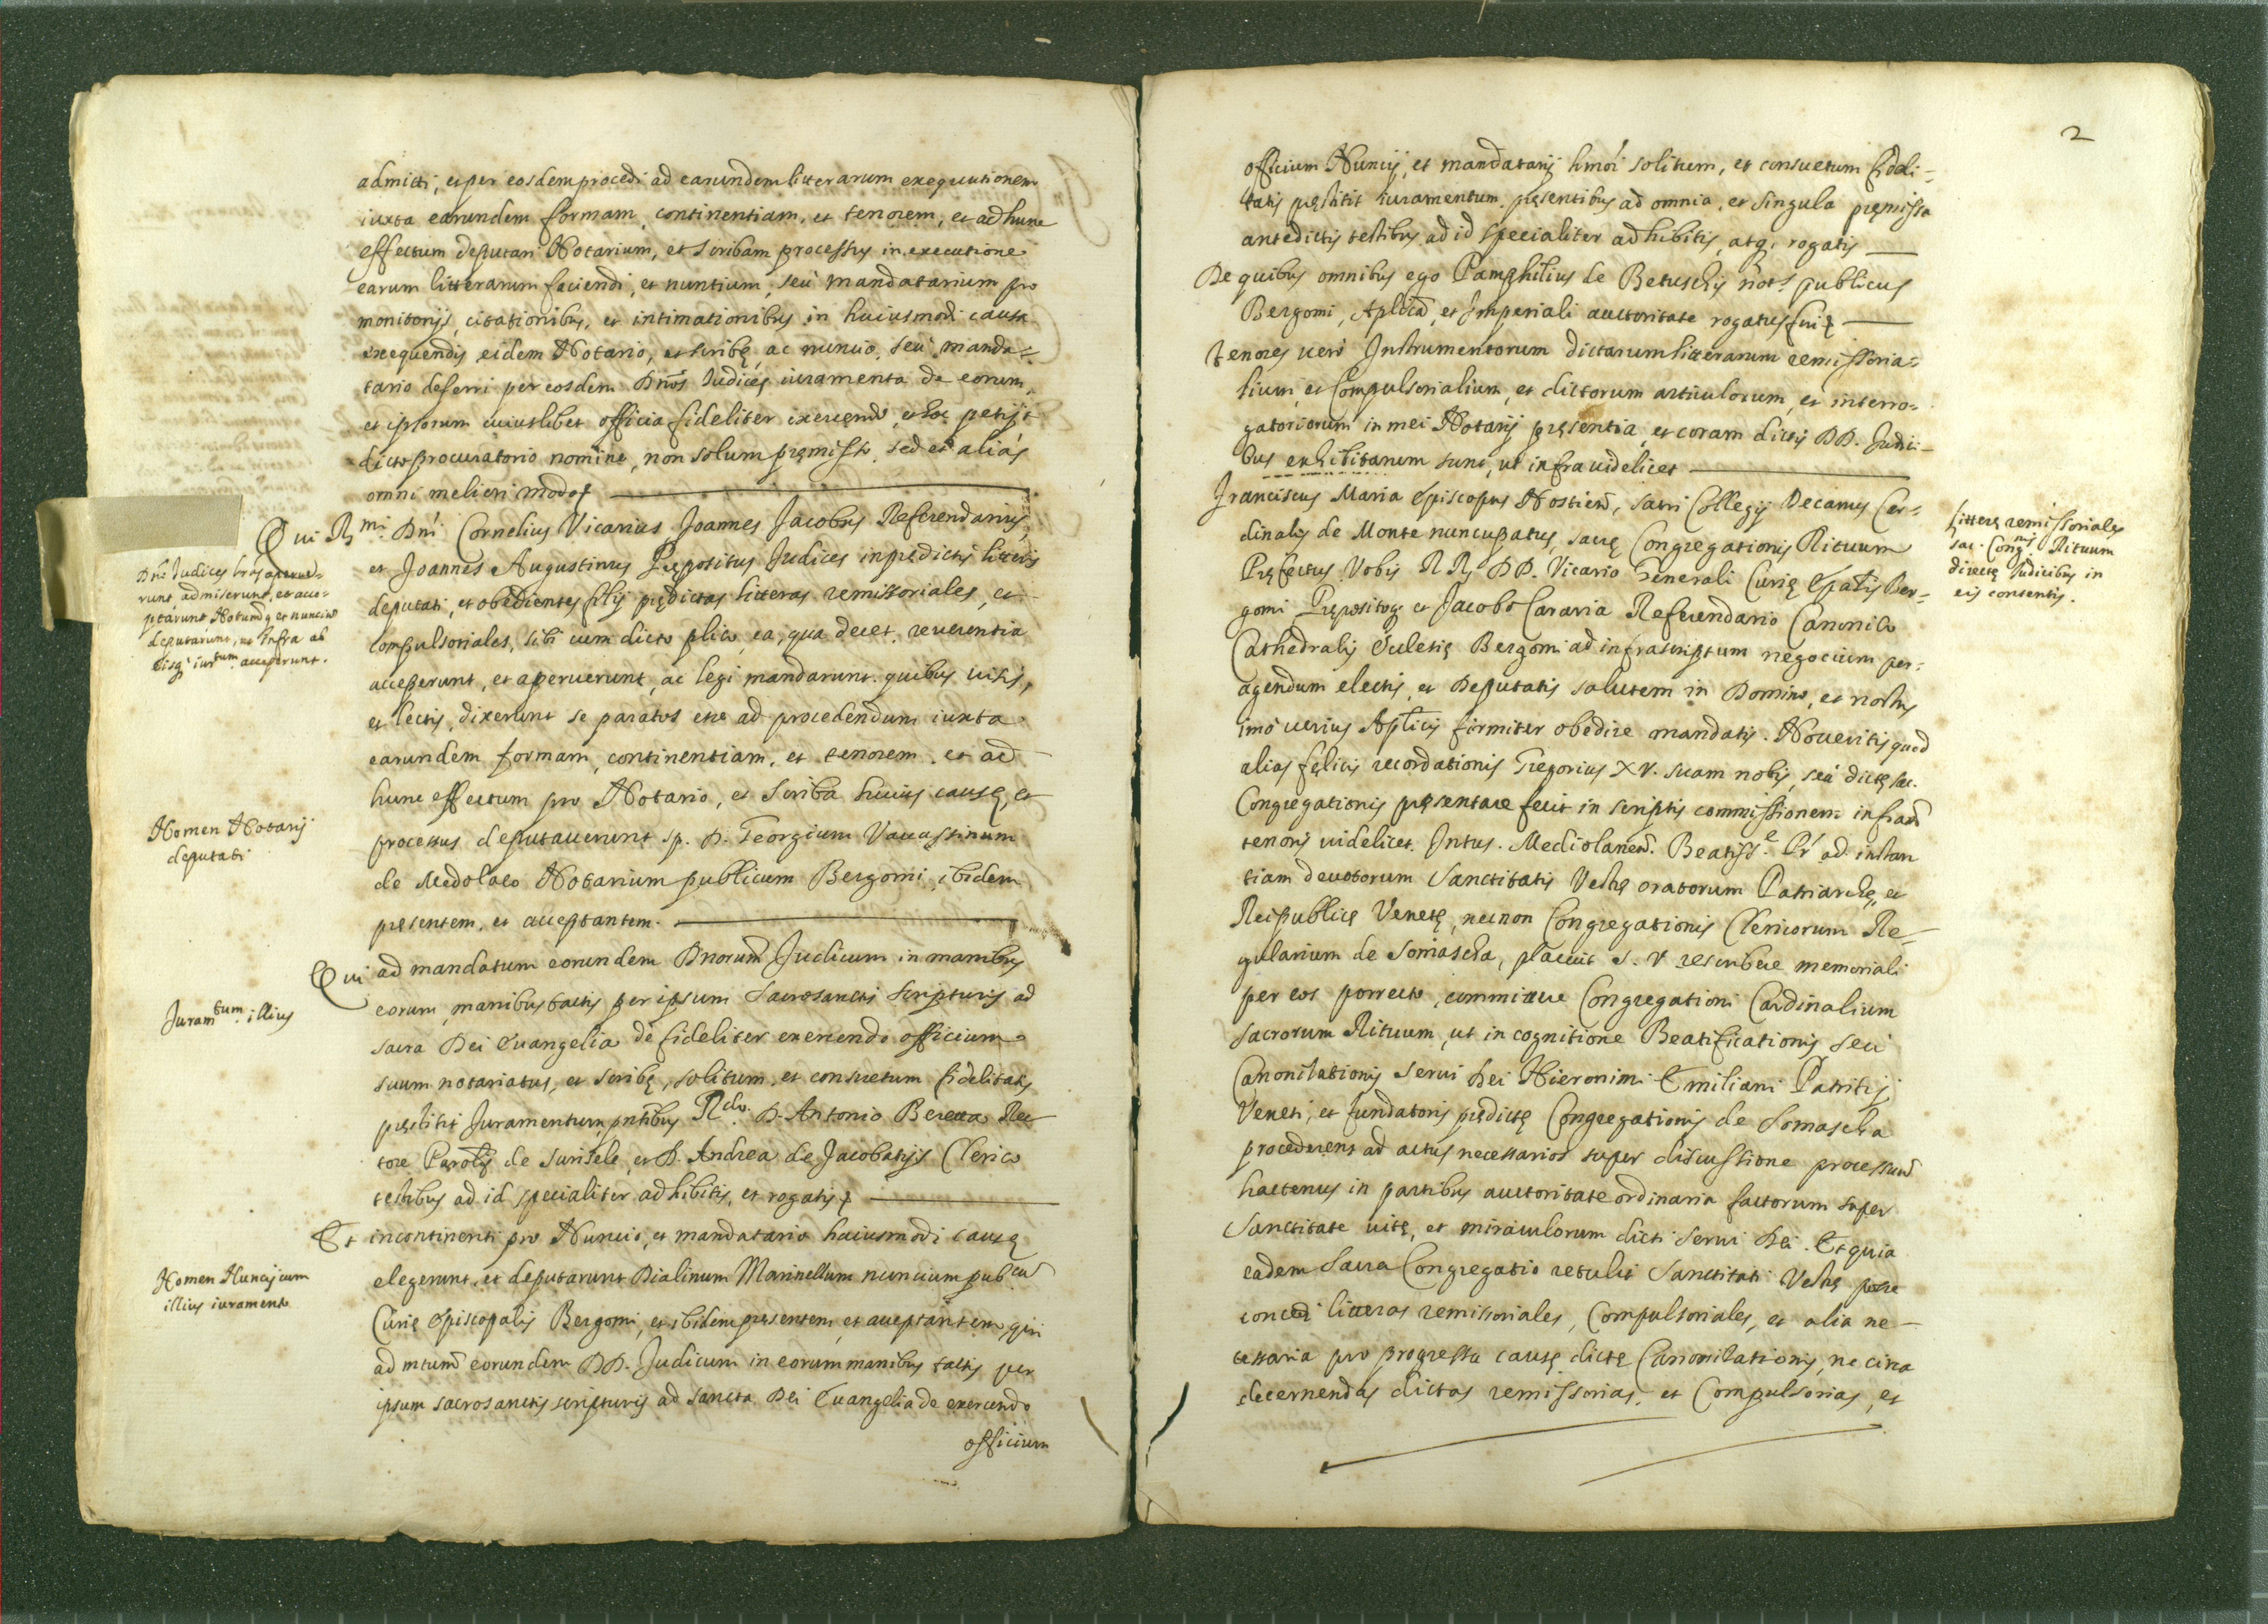 admitti, et per eosdem procedi ad earundem litterarum exequutionem
iuxta earundem formam, continentiam, et tenorem, et ad hunc
effectum deputari Notarium, et scribam processus in executione
earum litterarum faciendi, et nuntium, seù mandatarium pro
monitorijs, citationibus, et intimationibus in huiusmodi causa
exequendis eidem Notario, et scribę, ac nuncio, seù manda=
tario deferri per eosdem Dnos Iudices iuramenta de eorum,
et ipsorum cuiuslibet officia fideliter exercendo, et hoc petijt
dicto procuratorio nomine, non solum pręmisso, sed et aliàs
omni meliori modo
Dni Iudices lras aperue=
runt, admiserunt, et acce=
ptarunt Notumq et nuncium
deputarunt, ut infra ab
eisq iurtum acceperunt.
Qui Rmi Dni Cornelius Vicarius, Joannes Jacobus Referendarius,
et Joannes Augustinus Prępositus Judices in pędictis litteris
deputati, et obedientes filij pędictas litteras remissoriales, et
compulsoriales, sibi cum dicto plico, ea, qua decet, reuerentia
acceperunt, et aperuerunt, ac legi mandarunt. quibus uisis,
et lectis, dixerunt se paratos esse ad procedendum iuxta
earundem formam, continentiam, et tenorem, et ad
hunc effectum pro Notario, et scriba huius causę, et
Nomen Notarij
deputati
processus deputauerunt sp. D. Georgium Vauassinum
de Medolaco Notarium publicum Bergomi, ibidem
pręsentem, et acceptantem.
Qui ad mandatum eorundem Dnorum Judicum in manibus
Juramtum illius
eorum, manibus tactis per ipsum sacrosanctis scripturis ad
sacra Dei Euangelia de fideliter exercendo officium
suum notariatus, et scribę, solitum, et consuetum fidelitatis
pręstitit Juramentum, pntibus Rdo. D. Antonio Beretta Rec
tore Parolis de Surisele, et D. Andrea de Jacobatijs Clerico
testibus ad id specialiter adhibitis, et rogatis
Et incontinenti pro Nuncio, et mandatario huiusmodi causę
Nomen Nuncij cum
illius iuramento
elegerunt, et deputarunt Dialinum Marinellum nuncium pubcum
Curię Episcopalis Bergomi, et ibidem pręsentem, et acceptantem, qui
ad mtum eorundem DD. Judicum in eorum manibus tactis per
ipsum sacrosanctis scripturis ad sancta Dei Euangelia de exercendo
officium
2
officium Nuncij, et mandatarij hmoi solitum, et consuetum fideli=
tatis pręstitit iuramentum, pręsentibus ad omnia, et singula pręmissa
antedictis testibus ad id specialiter adhibitis, atq; rogatis
De quibus omnibus ego Pamphilius de Betuschis nots publicus
Bergomi, Aplica, et Imperiali auctoritate rogatus fui
Tenores uerò Instrumentorum dictarum litterarum remissoria=
lium, et compulsorialium, et dictorum articulorum, et interro=
gatoriorum in mei Notarij pręsentia, et coram dictis DD. Judici=
bus exhibitarum sunt, ut infra uidelicet
Franciscus Maria Episcopus Hostien, sacri Collegij Decanus Car=
Litterę remissoriales
sac. Congnis Rituum
directę Iudicibus in
eis contentis.
dinalis de Monte nuncupatus, sacrę Congregationis Rituum
Pręfectus Vobis RR DD. Vicario Generali Curię Epalis Ber=
gomi Pręposito, et Jacobo Cararia Referendario Canonico
Cathedralis Ecclesię Bergomi ad infrascriptum negocium per=
agendum electis, et Deputatis salutem in Domino, et nostris
imò uerius Aplicis firmiter obedire mandatis. Noueritis quod
alias fęlicis recordationis Gregorius XV. suam nobis, seù dictę sac.
Congregationis pręsentare fecit in scriptis commissionem infradi
tenoris uidelicet. Intus. Mediolanen. Beatiss.e Pr ad instan
tiam deuotorum Sanctitatis Vestrę oratorum Patriarchę, et
Reipublicę Venetę, necnon Congregationis Clericorum Re=
gularium de Somascha, placuit S. V. rescribere memoriali
per eos porrecto, committere Congregationi Cardinalium
sacrorum Rituum, ut in cognitione Beatificationis seu
Canonizationis serui Dei Hieronimi Emiliani Patritij
Veneti, et fundatoris pędictę Congregationis de Somascha
procederent ad actus necessarios super discussione processuum
hactenus in partibus auctoritate ordinaria factorum super
Sanctitate uitę, et miraculorum dicti serui Dei. Et quia
eadem Sacra Congregatio retulit Sanctitati Vestrę posse
concedi litteras remissoriales, Compulsoriales, et alia ne=
cessaria pro progressu causę dictę Canonizationis, ne circa
decernendas dictas remissorias, et Compulsorias, et